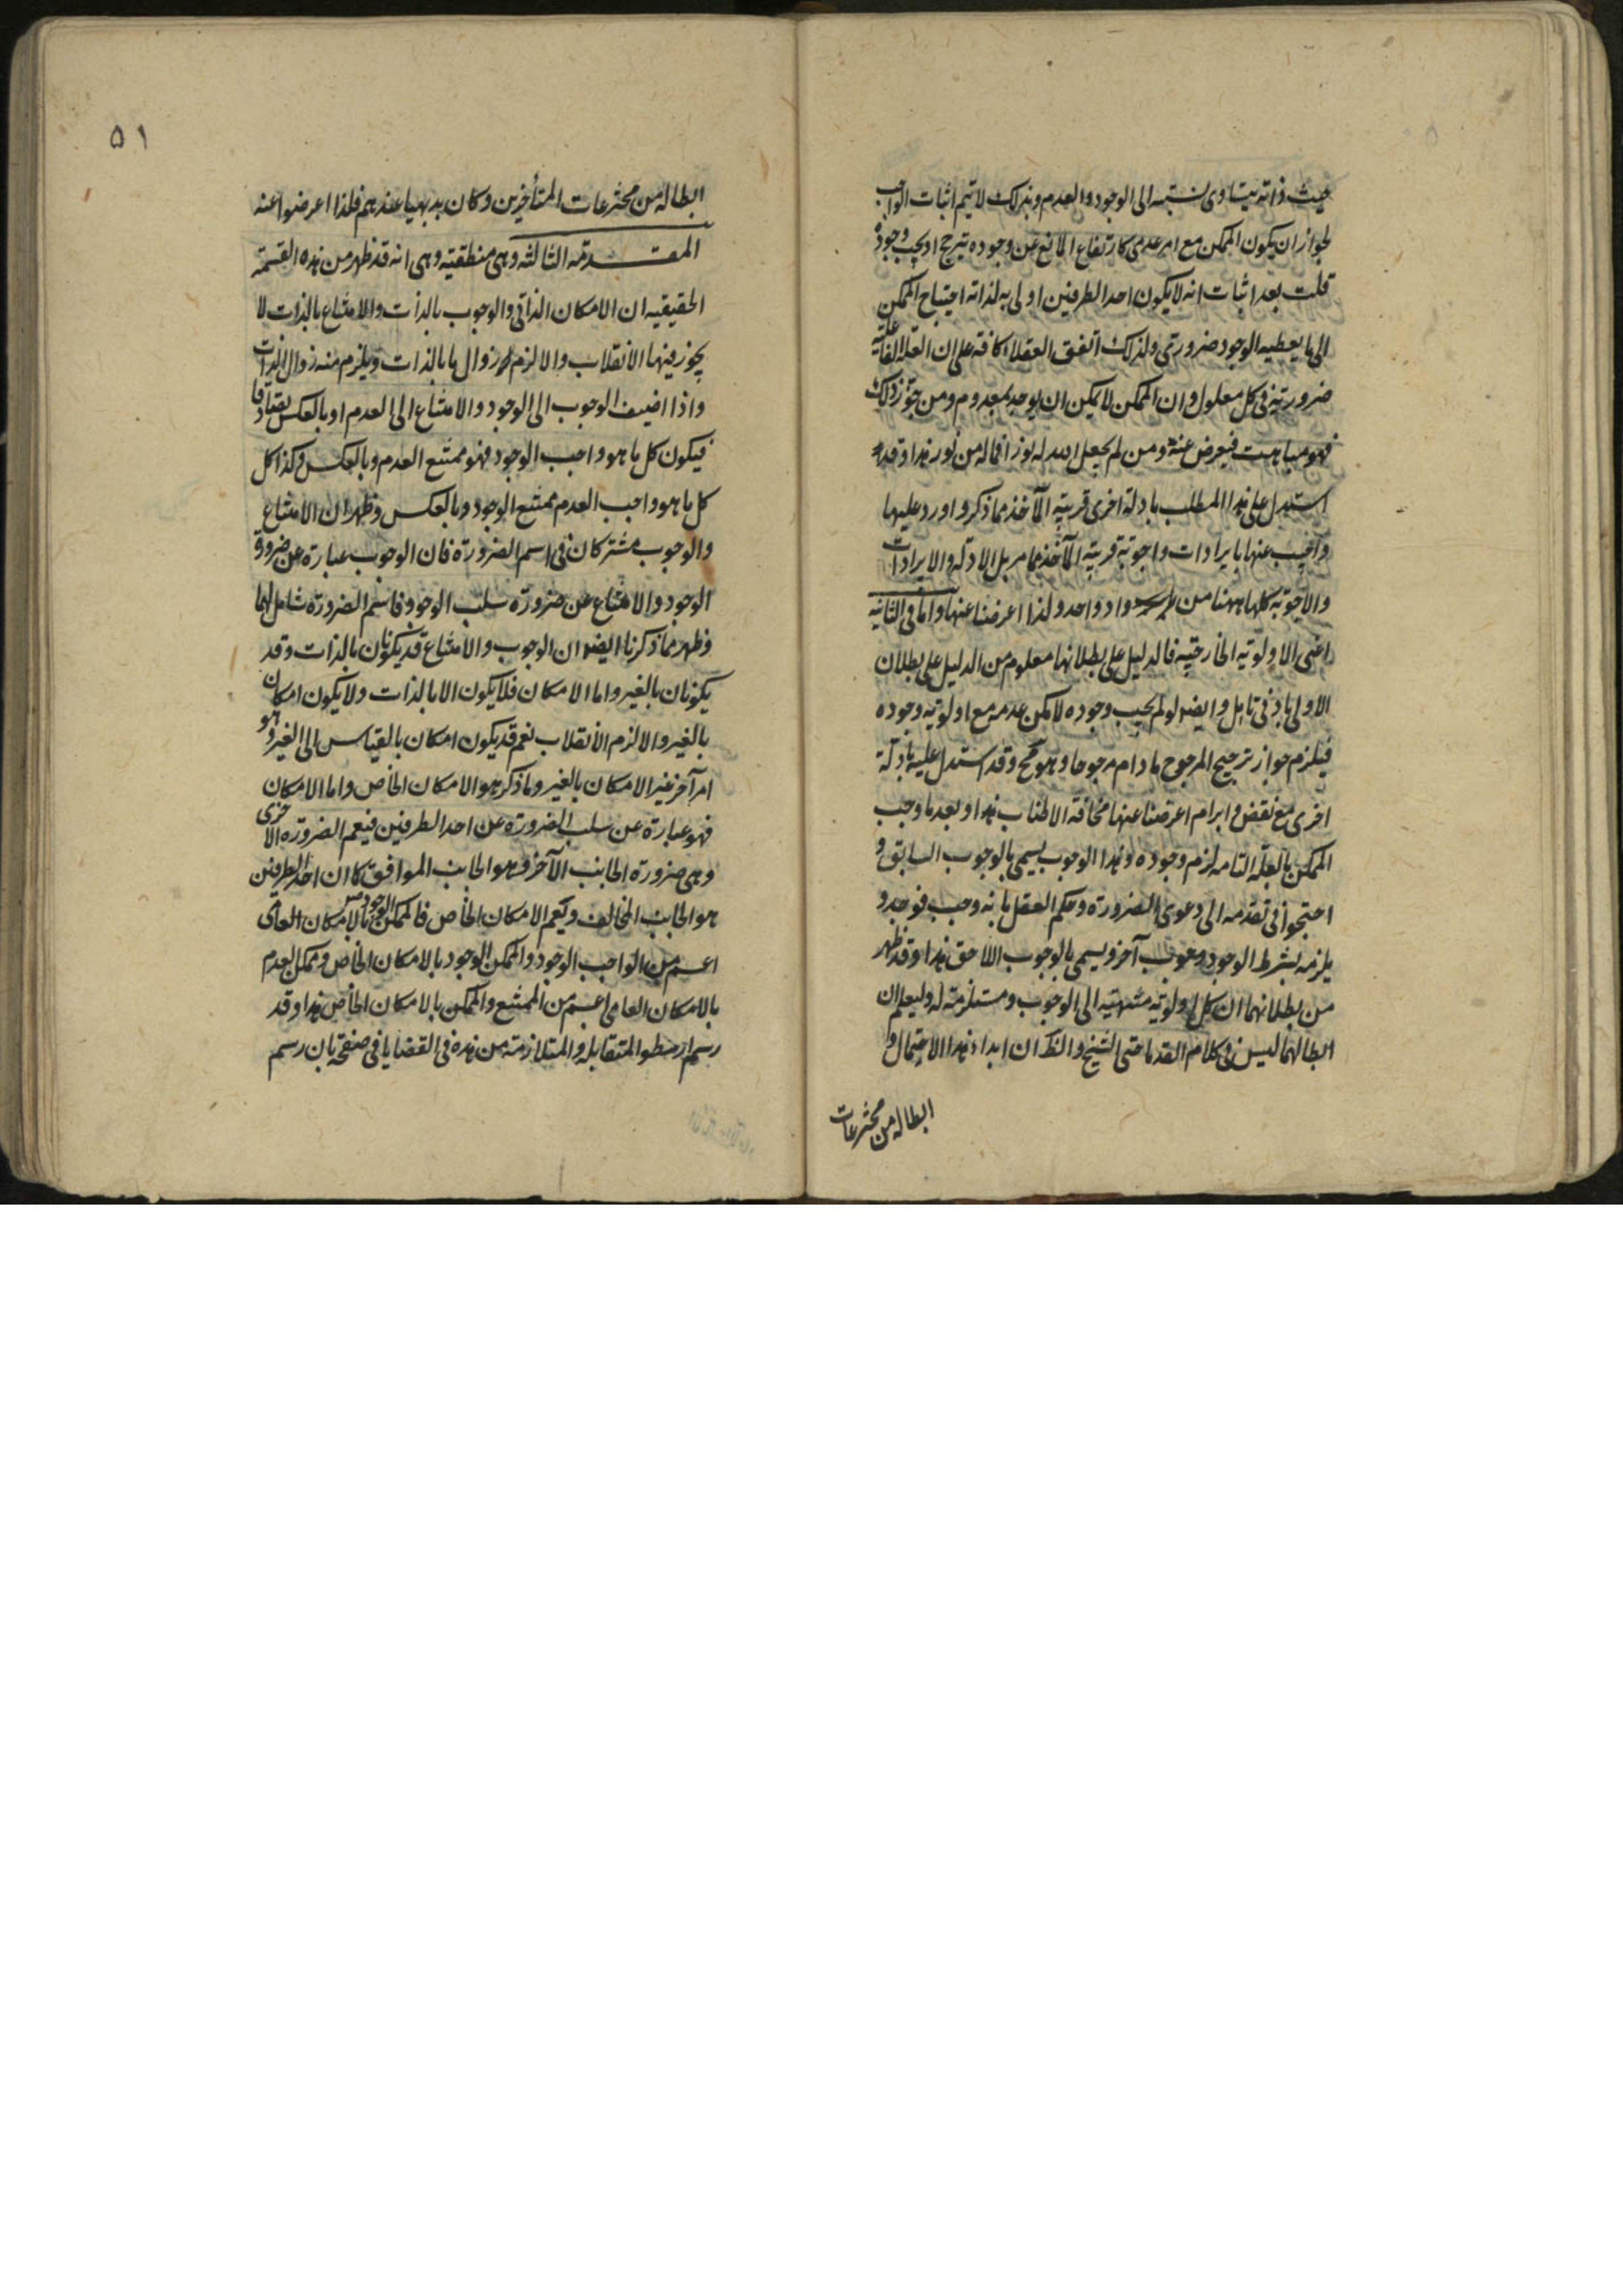 حيث ذاته يتساوى نسبته الى الوجود والعدم وبذلك لا يتم اثبات الواجب
لجواز ان يكون الممكن مع امر عدمى كارتفاع المانع عن وجوده يترجح او يجب وجوده
قلت بعد اثبات انه لا يكون احد الطرفين اولى به لذاته احتياج الممكن
الى ما يعطيه الوجود ضرورى ولذلك اتفق العقلاء كافة على ان العلة الفاعلية
ضرورية فى كل معلول وان الممكن لا يمكن ان يوجد بمعدوم ومن جوز ذلك
فهو مباهت فيعرض عنه ومن لم يجعل الله له نورا فما له من نور هذا وقد
استدل على هذا المطلب بادلة اخرى قريبة المآخذ مما ذكر واورد عليها
واجيب عنها بايرادات واجوبة قريبة المآخذ مما مر بل الادلة والايرادات
والاجوبة كلها ههنا من واد واحد ولذا اعرضنا عنها واما فى الثانية
اعنى الاولوية الخارجية فالدليل على بطلانها معلوم من الدليل على بطلان
الاولى بادنى تامل وايضا لو لم يجب وجوده لامكن عدمه مع اولوية وجوده
فيلزم جواز ترجيح المرجوح ما دام مرجوحا وهو مح وقد استدل عليه بادلة
اخرى مع نقض وابرام اعرضنا عنها مخافة الاطناب هذا وبعد ما وجب
الممكن بالعلة التامه لزم وجوده وهذا الوجوب يسمى بالوجوب السابق و
احتجوا فى تقدمه الى دعوى الضرورة وحكم العقل بانه وجب فوجد و
يلزمه بشرط الوجود وجوب آخر ويسمى بالوجوب اللاحق هذا وقد ظهر
من بطلانهما ان كل اولوية منتهية الى الوجوب ومستلزمة له وليعلم ان
ابطالهما ليس فى كلام القدما حتى الشيخ والظ ان ابداء هذا الاحتمال و
ابطاله من مخترعات
٥١
ابطاله من مخترعات المتأخرين وكان بديهيا عندهم فلذا اعرضوا عنه
المقدمة الثالثه وهى منطقية وهى انه قد ظهر من هذه القسمة
الحقيقيه ان الامكان الذاتى والوجوب بالذات والامتناع بالذات لا
يجوز فيها الانقلاب والا لزم زوال ما بالذات ويلزم منه زوال الذات
واذا اضيف الوجوب الى الوجود والامتناع الى العدم او بالعكس تصادقا
فيكون كل ما هو واجب الوجود فهو ممتنع العدم وبالعكس وكذا كل
كل ما هو واجب العدم ممتنع الوجود وبالعكس وظهر ان الامتناع
والوجوب مشتركان فى اسم الضرورة فان الوجوب عبارة عن ضرورة
الوجود والامتناع عن ضرورة سلب الوجود فاسم الضرورة شامل لهما
وظهر مما ذكرنا ايضا ان الوجوب والامتناع قد يكونان بالذات وقد
يكونان بالغير واما الامكان فلا يكون الا بالذات ولا يكون امكان
بالغير والا لزم الانقلاب نعم قد يكون امكان بالقياس الى الغير وهو
امر آخر غير الامكان بالغير وما ذكر هو الامكان الخاص واما الامكان
فهو عبارة عن سلب الضرورة عن احد الطرفين فيعم الضرورة الاخرى
وهى ضرورة الجانب الآخر وهو الجانب الموافق كما ان احد الطرفين
هو الجانب المخالف ويعم الامكان الخاص فالممكن الوجود بالامكان العامى
اعم من الواجب الوجود والممكن الوجود بالامكان الخاص وممكن العدم
بالامكان العامى اعم من الممتنع والممكن بالامكان الخاص هذا وقد
رسم ارسطو المتقابله والمتلازمة من هذه فى القضايا فى صفحة بان رسم